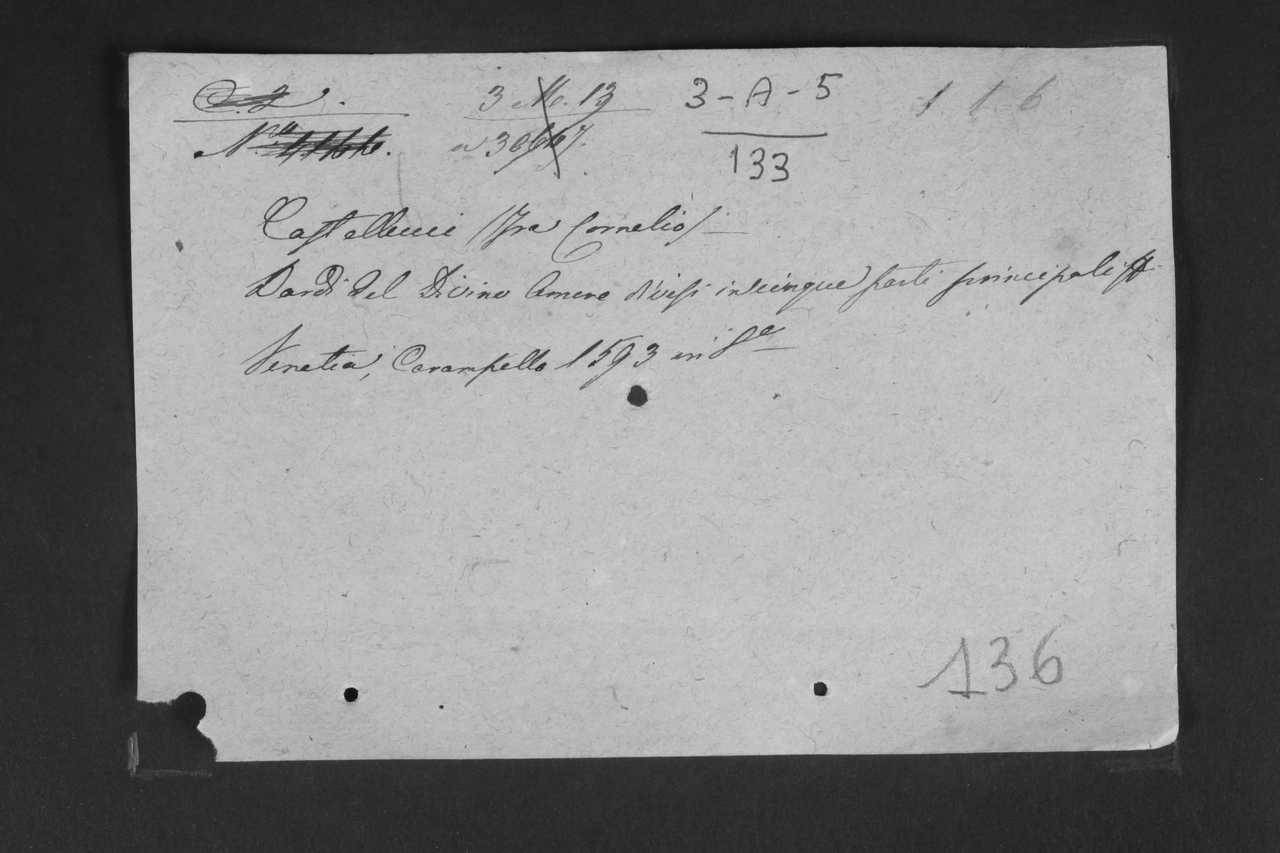 3 M. 13 3-A-5 1. 1. 6
133
Castellucci (Fra Cornelio)
Dardi del Divino Amore divisi in cinque parti principali
Venetia, Carampello 1593 in 8º
136